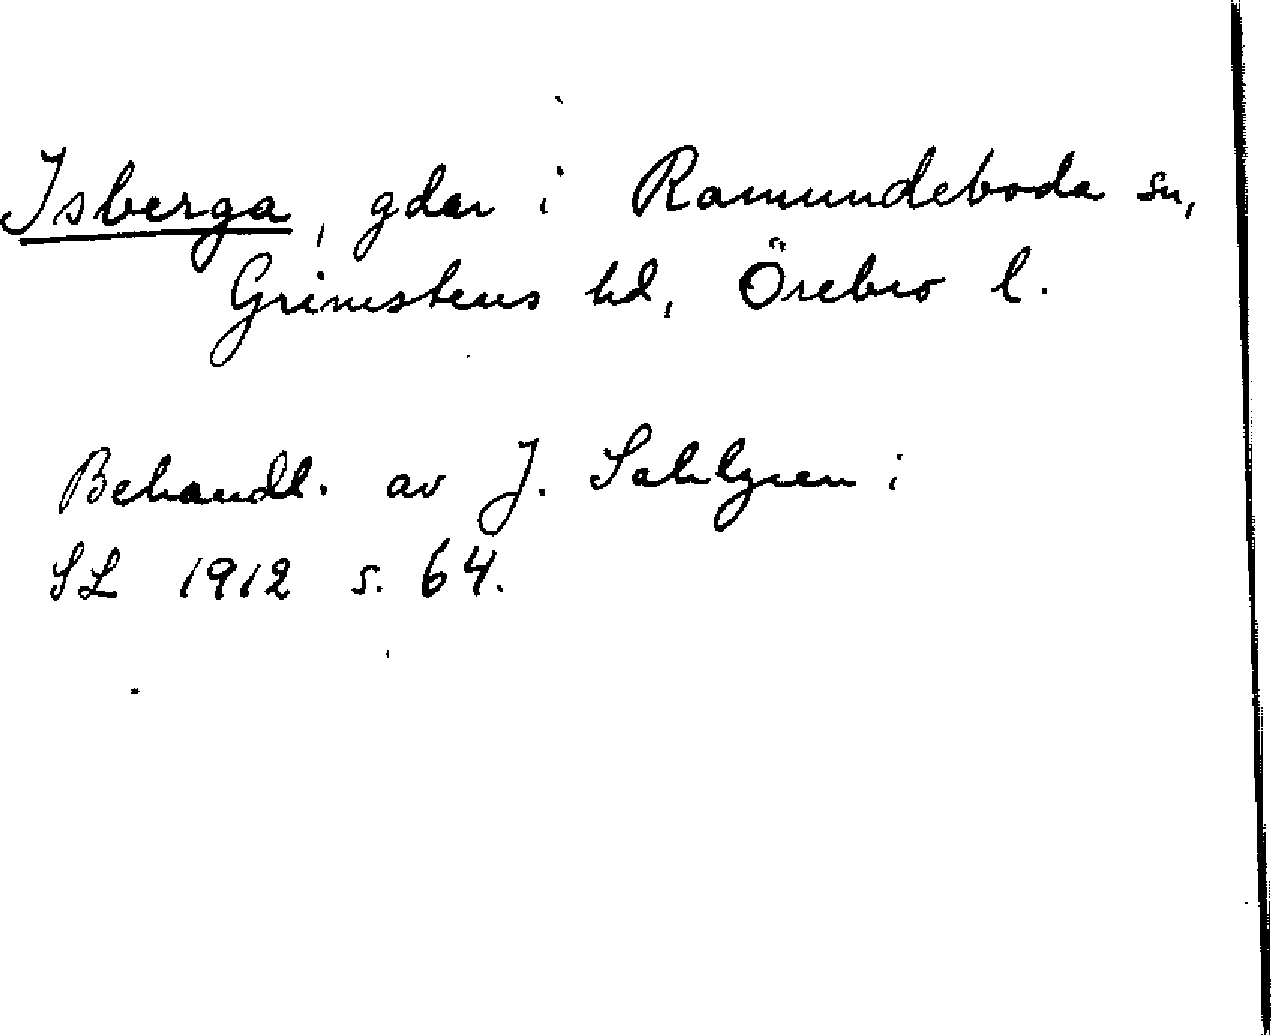 Isberga, gdar i Ramundeboda sn,
Grimstens hd, Örebro l.
Behandl. av J. Sahlgren i
SL 1912 s. 64.